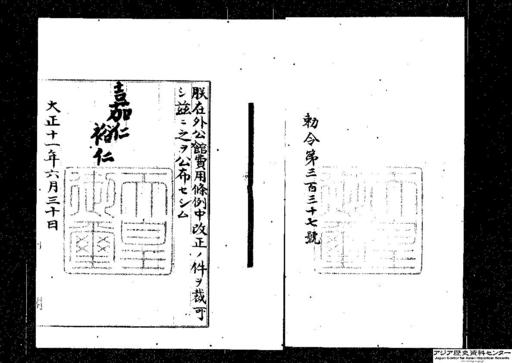 勅令第三百三十七號
朕在外公館費用條例中改正ノ件ヲ裁可
シ茲ニ之ヲ公布セシム
嘉仁
裕仁
天皇御璽
大正十一年六月三十日
アジア歴史資料センター
Japan Center for Asian Historical Records